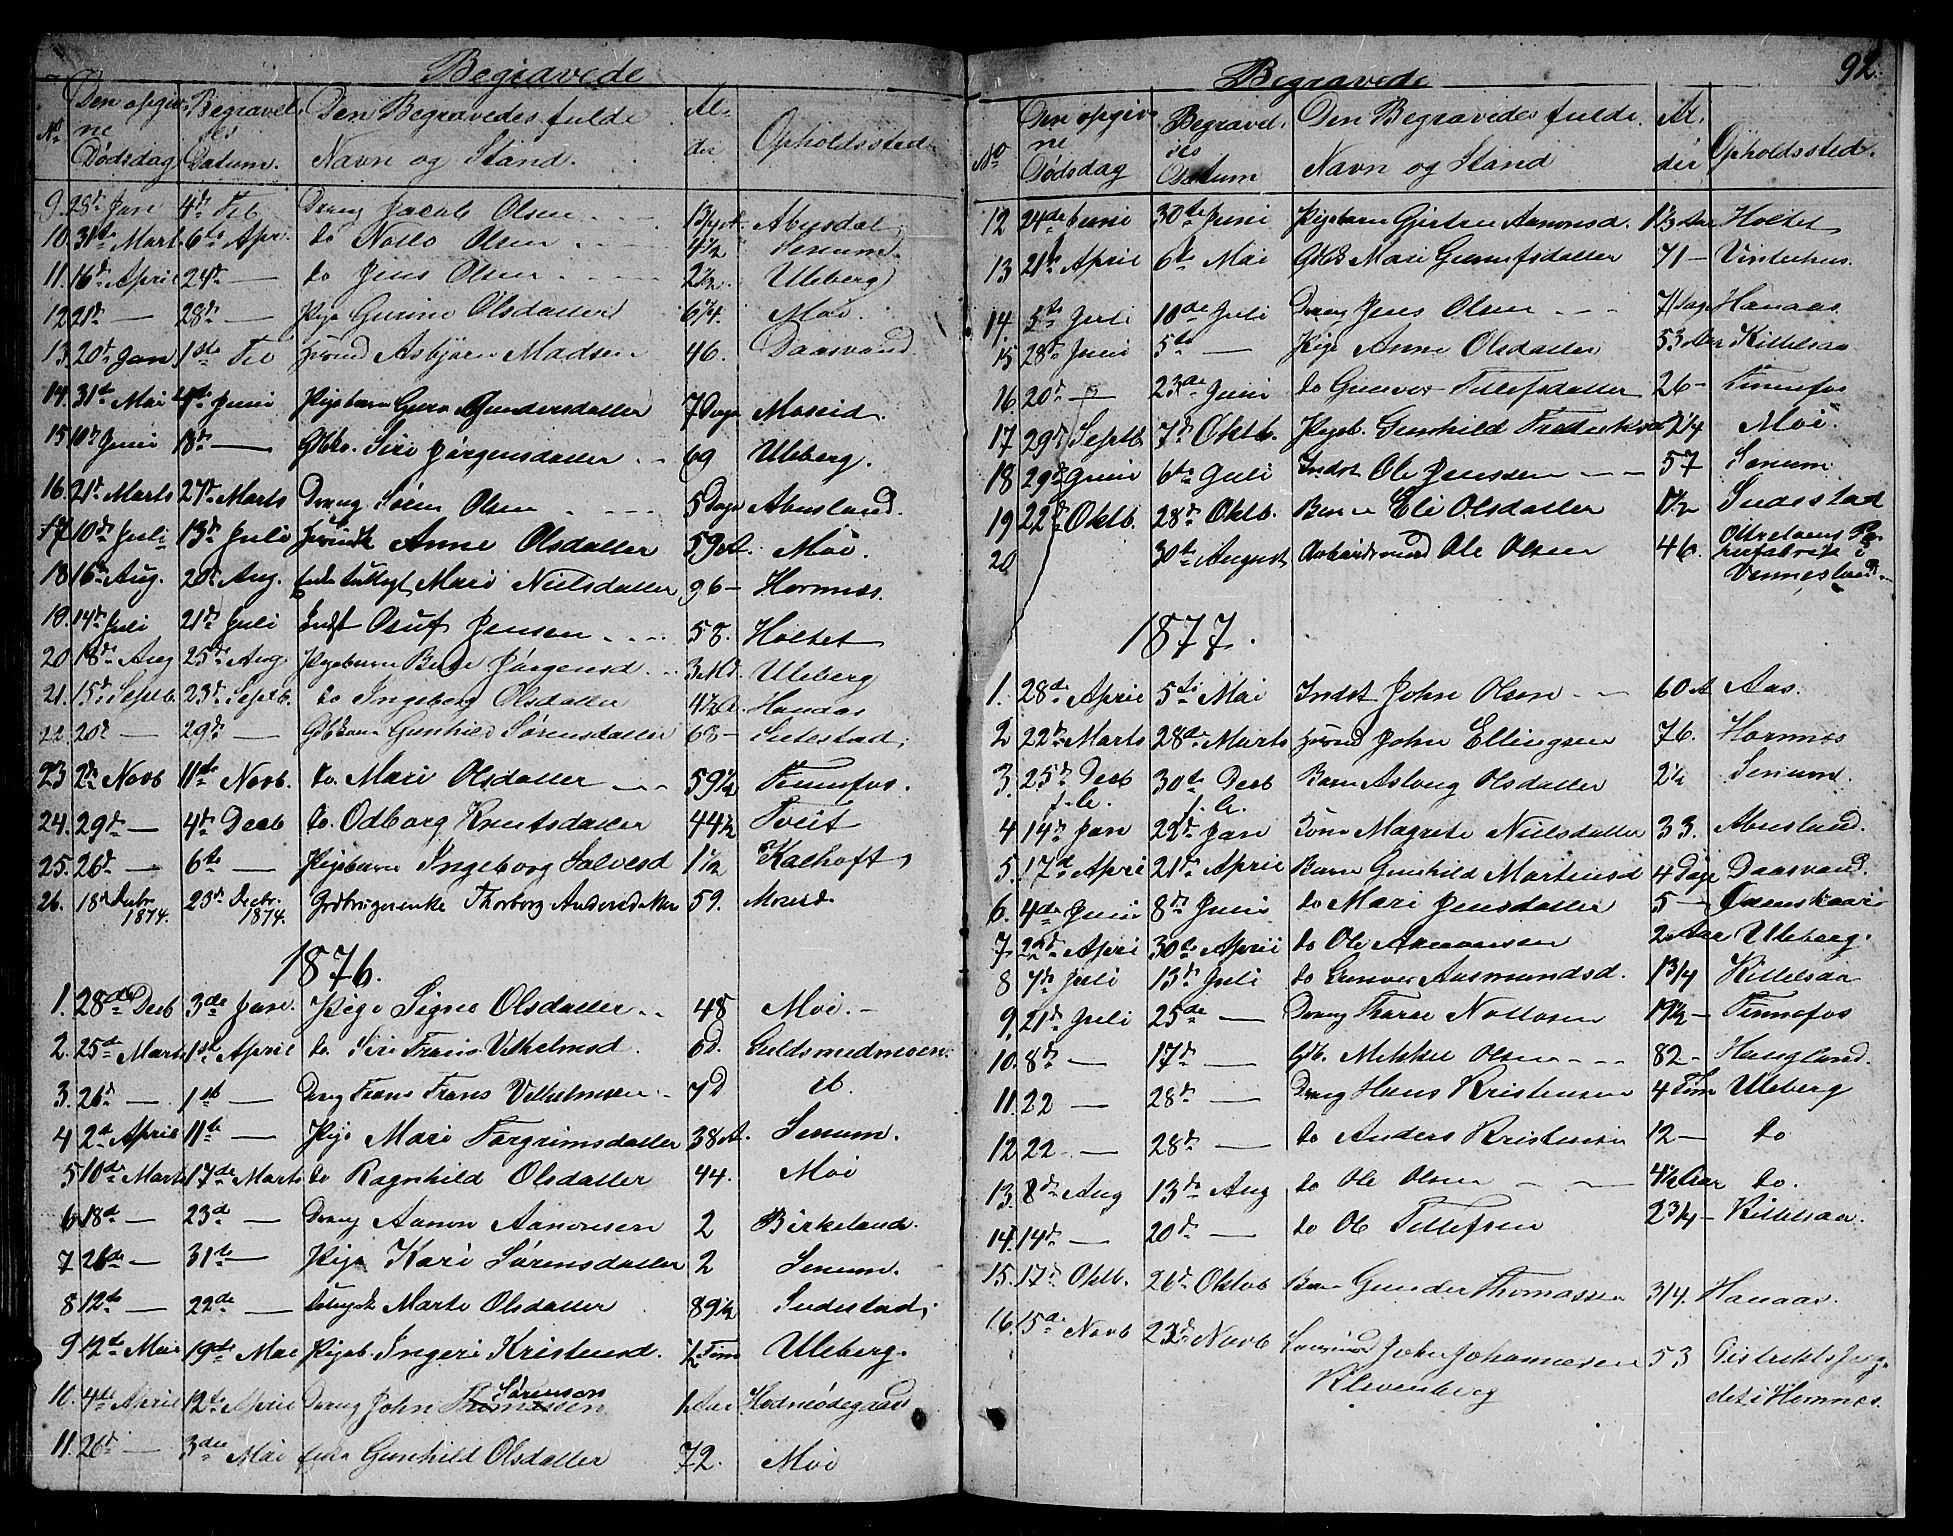 Begravede
No
Den opgivne Dødsdag
Begravelses Datum.
Den Begravedes fulde Navn og Stand.
Alder
Opholdssted.
9. 28de Jan 4de Feb Dreng Jacob Olsen 1 3/4 A. Abusdal.
10. 31te Mart 6te Apr. do Notto Olsen 4 1/2 Senum.
11. 16de April 24de — do Jens Olsen 2 1/2 Uleberg
12 21de — 28de — Pige Gurine Olsdatter 6 1/4. Moi.
13. 20de Jan 1ste Feb Asbjørn Madsen 46. Daasvand
14. 31te Mai 4de Juni Pigebarn Guro Gundersdatter 7 Dage Moseid.
15 10de Juni 18de — Gbko. Siri Jørgensdatter 69 Uleberg.
16. 21de Marts 27de Marts Dreng Søren Olsen 5 Dage Abusland.
17 10de Juli 13de Juli Anne Olsdatter 59 A. Moi.
18 16de Aug. 20de Aug. Mari Nielsdatter 96 — Hornnes.
19. 14de Juli 21de Juli Indst Osuf Jensen 58. Holtet
20 18de Aug 25de Aug. Pigebarn Jørgensd 3 Md. Uleberg
21. 15de Septb. 23de Septb. do Ingeborg Olsdatter 4 1/2 A. Hanaas
22. 20de — 29de — Gbkone Gunhild Sørensdatter 68 — Sutestad.
23 2de Novb 11te Novb. do. Mari Olsdatter 59 1/2 Fennefos.
24. 29de — 4de Decb do. Odborg Knutsdatter 44 1/2 Tveit
25. 26de — 6te — Pigebarn Ingeborg Salvesd 1 1/2 Kalhoft
26. 18de Decbr. 1874. 23de Decbr. 1874. Grdbrugerenke Thorborg Andersdatter 59. Moseid.
1876.
1. 28de Decb 3de Jan. Pige Signe Olsdatter 48 Moi. —
2. 25de Marts 1ste April do. Siri Frans Vilhelmsd. 6 d. Guldsmedmoen.
3. 26de — 1ste — Dreng Frans Frans Vilhelmsen 7 D
4 2de April 11te — Pige Mari Torgrimsdatter 38 A. Senum.
5 10de Marts 17de Marts do Ragnhild Olsdatter 44. Moi
6 18de — 23de — Dreng Aanon Aanonsen 2 Birkeland.
7 26de — 31te — Pige Kari Sørensdatter 2 Senum.
8 12te — 22de — Marte Olsdatter 89 1/2 Sudestad.
9 12te Mai 19de Mai Pigeb. Ingeri Kristensd. 1/2 Time Uleberg.
10. 4de April 12te April Dreng John Thomassen Sørensen 1 Aar Hodneødegaard
11. 26de — 3die Mai Gunhild Olsdatter 72. Moi
92.
Begravede
No
Den opgivne Dødsdag
Begravelses Datum
Den Begravedes fulde Navn og Stand
Alder
Opholdssted.
12 24de Juni 30te Juni Pigebarn Gjertru Aanonsd. 1 1/3 Aar Holtet
13 21de April 6te Mai Gbko Mari Gunufsdatter 71 — Vinterhus.
14. 5te Juli 10de Juli Dreng Jens Olsen 7 Dage Hanaas
15 28de Juni 5te — Pige Anne Olsdatter 53 Aar Killelsaa
16 20de — 23de Juni do Gunvor Tellefsdatter 26 — Fennefos
17 29de Septb. 7de Oktb. Pigeb. Gunhild Frederiksd 2 1/4 Moi.
18 29de Juni 6te Juli Indst Ole Jenssen 57 Senum
19 22de Oktb. 28de Oktb. Barn Eli Olsdatter 1 1/2 Sudestad
20 30te August Arbeidsmand Ole Olsen 46. Otterelvens Papirfabrik i Vennesland.
1877.
1. 28de April 5te Mai Indst John Olsen 60 A Aas.
2 22de Marts 28de Marts John Ellingsen 76. Hornnes
3. 25de Decb f. A. 30te Decb f. A. Barn Aslaug Olsdatter 2 1/4 Senum.
4 14de Jan 22de Jan Kone Magrete Nielsdatter 33. Abusland.
5. 17de April 21de April Barn Gunhild Martensd 4 Dage Daasvand.
6. 4de Juni 8de Juni do Mari Jensdatter 5 —
7 22de April 30te April do Ole 2 Aar Uleberg.
8 7de Juli 13de Juli do Gunvor Aasmundsd. 1 3/4 Killelsaa
9. 21de Juli 25de — Dreng Taral Nottosen 19 1/2 — Fennefos
10. 8de — 17de — Gb. Mikkel Olsen 82 — Haugland.
11. 22 — 28de — Dreng Hans Kristensen 4 Tim Uleberg
12 22 — 28de — do Anders Kristensen 12 — do
13. 8de Aug 13de Aug do Ole Olsen 4 1/2 Aar do.
14. 14de — 20de — do Ole Tellefsen 2 3/4 — Killelsaa.
15. 17de Oktb. 26de Oktob Barn Gunder Thomassen 3/4. Hanaas.
16. 15de Novb 23de Novb John Johannesen Klevenberg 53 Distriktsfængslet i Hornnes.